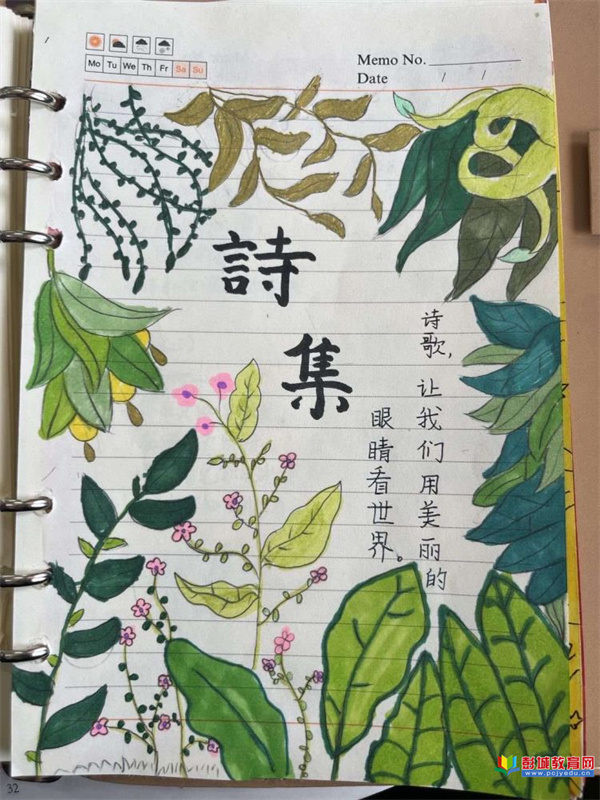 Mo Tu We Th Fr Sa Su
Memo No.
Date / /
詩
集
诗歌,让我们用美丽的
眼睛看世界。
32
彭城教育网
www.pcjyedu.cn